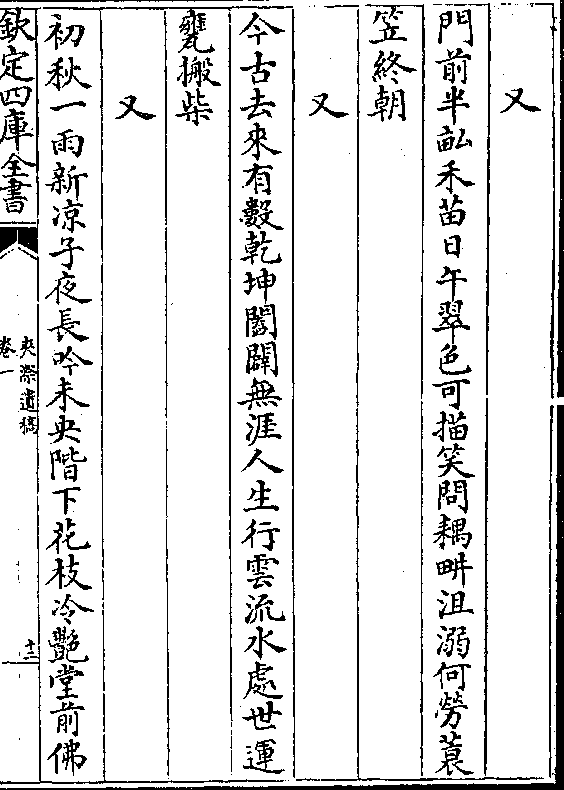 又
門前半畝禾苗日午翠色可描笑問耦畊沮溺何勞蓑
笠終朝
又
今古去來有數乾坤闔闢無涯人生行雲流水處世運
甕搬柴
又
初秋一雨新凉子夜長吟未央階下花枝冷豔堂前佛
欽定四庫全書
夾漈遺稿
卷一
十二